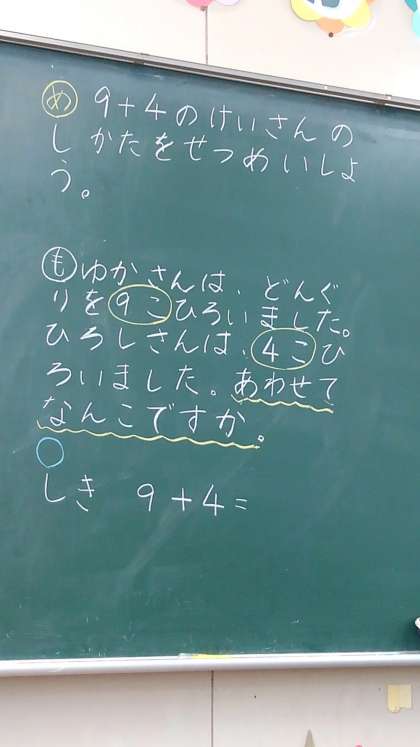 め 9+4のけいさんの
しかたをせつめいしよ
う。
も ゆかさんは、どんぐ
りを9こひろいました。
ひろしさんは、4こひ
ろいました。あわせて
なんこですか。
しき 9+4=